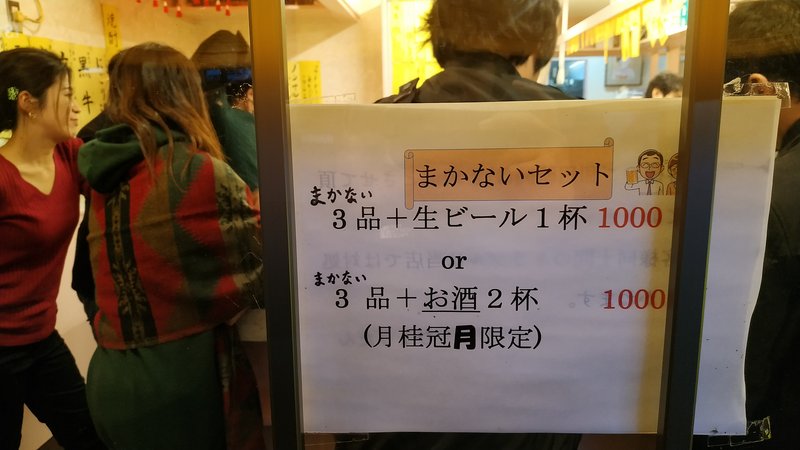 まかないセット
まかない
3品＋生ビール1杯 1000
or
まかない
3 品＋お酒2杯 1000
(月桂冠月限定)
黒
牛